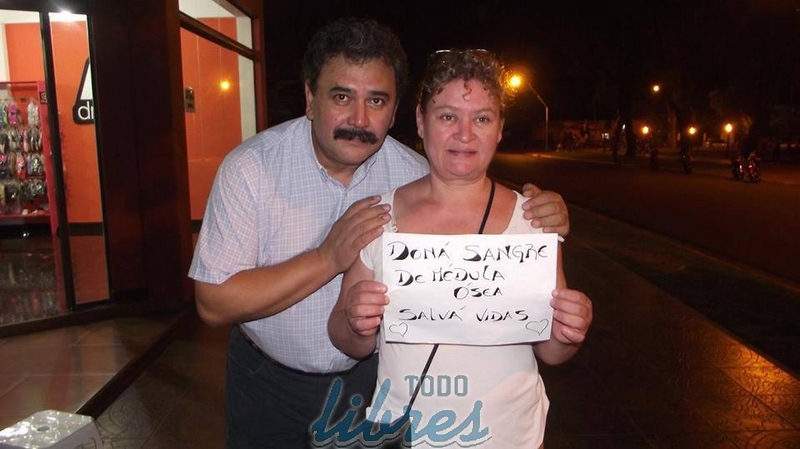 di
DONÁ SANGRE
DE MÉDULA
ÓSEA
SALVÁ VIDAS
TODO
libres